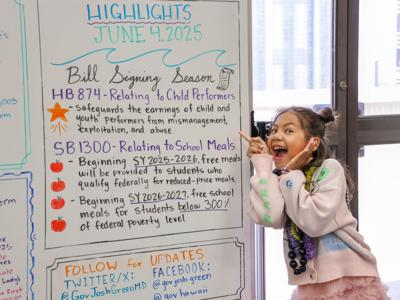 HIGHLIGHTS
JUNE 4.2025
Bill Signing Season
HB 874 - Relating to Child Performers
- Safeguards the earnings of child and
youth performers from mismanagement,
exploitation, and abuse
SB1300 - Relating to School Meals
- Beginning SY 2025-2026, free meals
will be provided to students who
qualify federally for reduced-price meals.
- Beginning SY 2026-2027, free school
meals for students below 300%
of federal poverty level.
FOLLOW for UPDATES
TWITTER/X:
@GovJoshGreenMD
FACEBOOK:
@govjoshgreen
@govhawaii